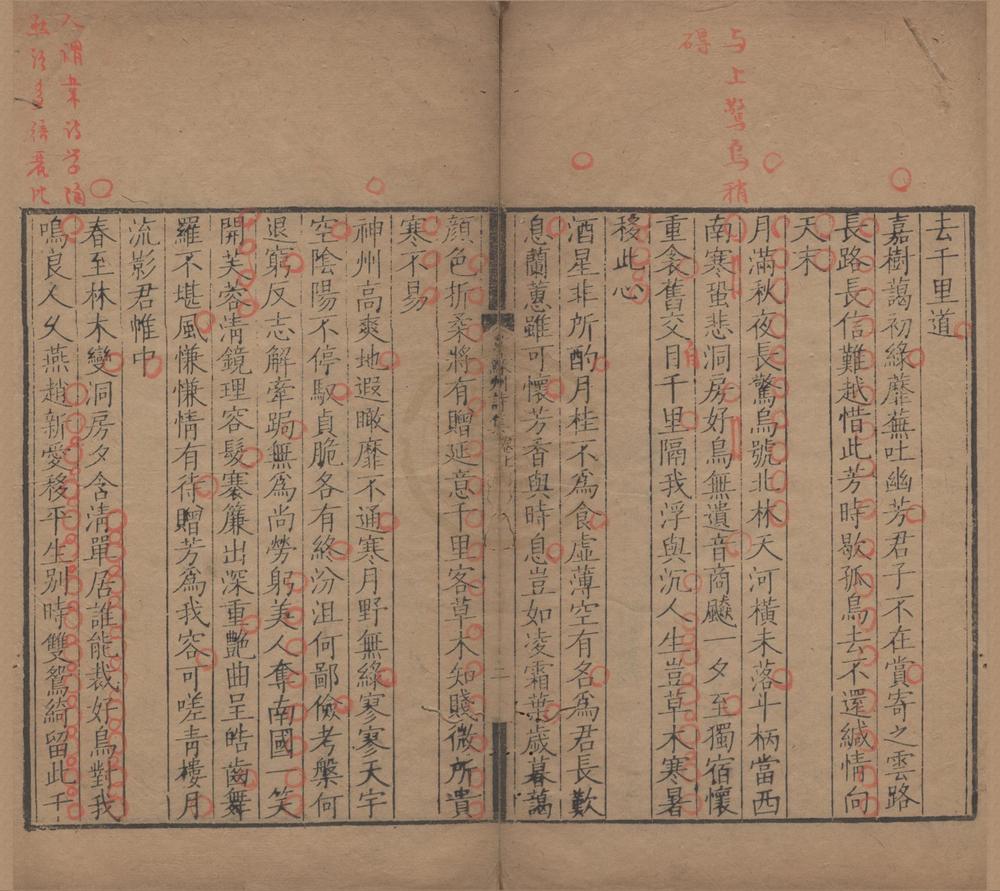 与上驚烏稍
碍
去千里道
嘉樹藹初綠蘼蕪吐幽芳君子不在賞寄之雲路
長路長信難越惜此芳時歇孤鳥去不還緘情向
天末
月滿秋夜長驚烏號北林天河橫未落斗柄當西
南寒蛩悲洞房好鳥無遺音商飈一夕至獨宿懷
重衾舊交日千里隔我浮與沉人生豈草木寒暑
移此心
酒星非所酌月桂不爲食虛薄空有名爲君長歎
息蘭蕙雖可懷芳香與時息豈如凌霜葉歲暮藹
顏色折柔將有贈延意千里客草木知賤微所貴
寒不易
神州高爽地遐瞰靡不通寒月野無綠寥寥天宇
空陰陽不停馭貞脆各有終汾沮何鄙儉考槃何
退窮反志解牽跼無爲尚勞躬美人奪南國一笑
開芙蓉清鏡理容髮褰簾出深重艷曲呈皓齒舞
羅不堪風慊慊情有待贈芳爲我容可嗟青樓月
流影君帷中
春至林木變洞房夕含清單居誰能裁好鳥對我
鳴良人久燕趙新愛移平生別時雙鴛綺留此千
人謂韋詩學陶
蘇州詩集 卷上
二